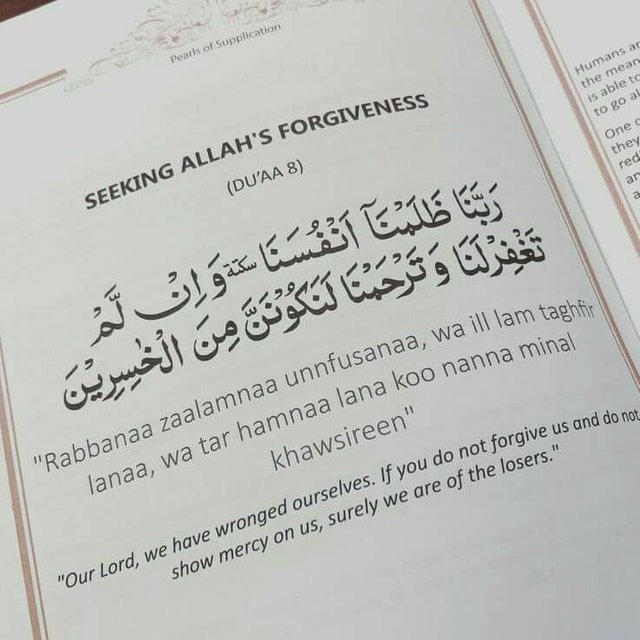 Pearls of Supplication
SEEKING ALLAH'S FORGIVENESS
(DU'AA 8)
رَبَّنَا ظَلَمْنَآ اَنْفُسَنَا سكتة وَ اِنْ لَّمْ
تَغْفِرْلَنَا وَ تَرْحَمْنَا لَنَكُوْنَنَّ مِنَ الْخٰسِرِيْنَ
"Rabbanaa zaalamnaa unnfusanaa, wa ill lam taghfir
lanaa, wa tar hamnaa lana koo nanna minal
khawsireen"
"Our Lord, we have wronged ourselves. If you do not forgive us and do not
show mercy on us, surely we are of the losers."
Humans
the
is able to
to go
One
they